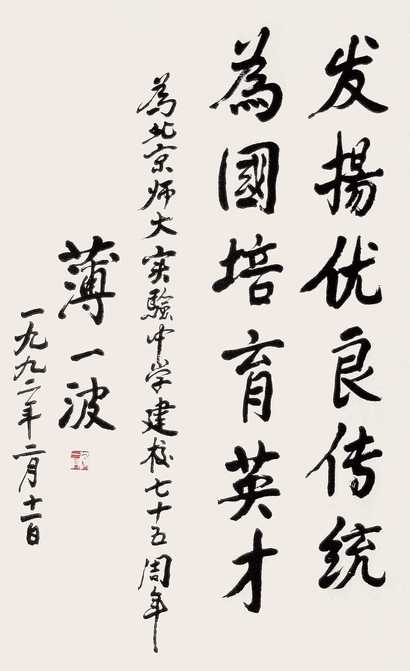 发揚优良传统
為國培育英才
為北京师大实驗中学建校七十五周年
薄一波
一九九二年二月十一日